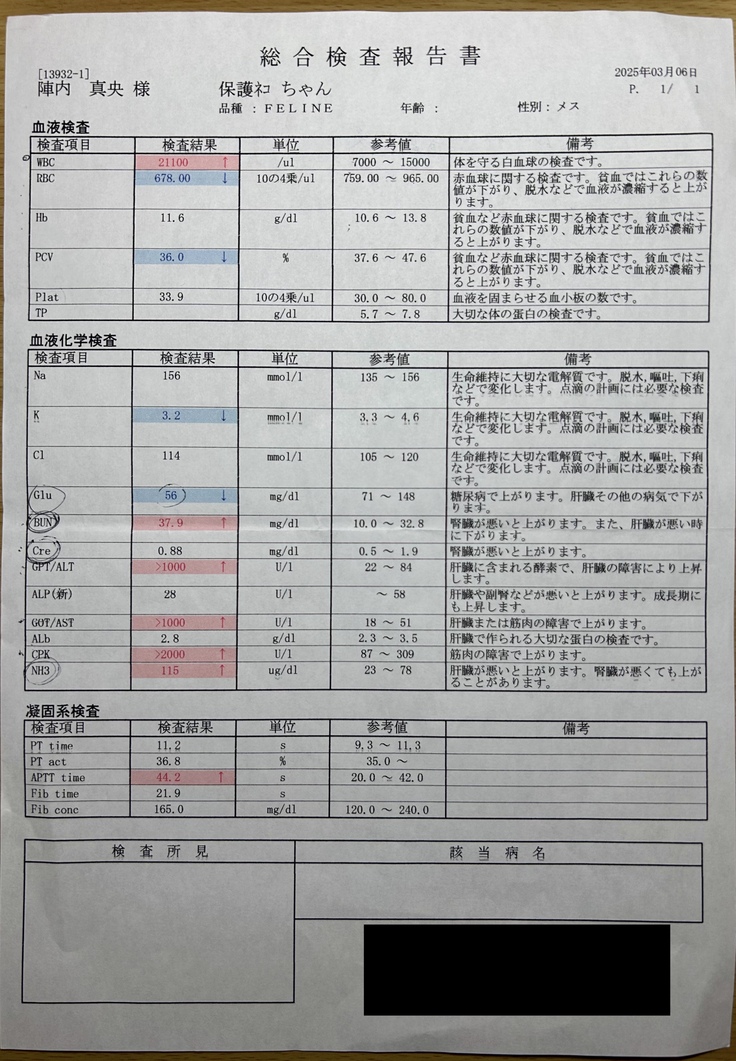 総合検査報告書
[13932-1]
2025年03月06日
陣内 真央 様 保護ネコ ちゃん P. 1/ 1
品種 : FELINE 年齢 : 性別 : メス
血液検査
検査項目 検査結果 単位 参考値 備考
WBC 21100 ↑ /ul 7000 ～ 15000 体を守る白血球の検査です。
RBC 678.00 ↓ 10の4乗/ul 759.00 ～ 965.00 赤血球に関する検査です。貧血ではこれらの数
値が下がり、脱水などで血液が濃縮すると上が
ります。
Hb 11.6 g/dl 10.6 ～ 13.8 貧血など赤血球に関する検査です。貧血ではこ
れらの数値が下がり、脱水などで血液が濃縮す
ると上がります。
PCV 36.0 ↓ % 37.6 ～ 47.6 貧血など赤血球に関する検査です。貧血ではこ
れらの数値が下がり、脱水などで血液が濃縮す
ると上がります。
Plat 33.9 10の4乗/ul 30.0 ～ 80.0 血液を固まらせる血小板の数です。
TP g/dl 5.7 ～ 7.8 大切な体の蛋白の検査です。
血液化学検査
検査項目 検査結果 単位 参考値 備考
Na 156 mmol/l 135 ～ 156 生命維持に大切な電解質です。脱水,嘔吐,下痢
などで変化します。点滴の計画には必要な検査
です。
K 3.2 ↓ mmol/l 3.3 ～ 4.6 生命維持に大切な電解質です。脱水,嘔吐,下痢
などで変化します。点滴の計画には必要な検査
です。
Cl 114 mmol/l 105 ～ 120 生命維持に大切な電解質です。脱水,嘔吐,下痢
などで変化します。点滴の計画には必要な検査
です。
Glu 56 ↓ mg/dl 71 ～ 148 糖尿病で上がります。肝臓その他の病気で下が
ります。
BUN 37.9 ↑ mg/dl 10.0 ～ 32.8 腎臓が悪いと上がります。また、肝臓が悪い時
に下がります。
Cre 0.88 mg/dl 0.5 ～ 1.9 腎臓が悪いと上がります。
GPT/ALT >1000 ↑ U/l 22 ～ 84 肝臓に含まれる酵素で、肝臓の障害により上昇
します。
ALP(新) 28 U/l ～ 58 肝臓や副腎などが悪いと上がります。成長期に
も上昇します。
GOT/AST >1000 ↑ U/l 18 ～ 51 肝臓または筋肉の障害で上がります。
ALb 2.8 g/dl 2.3 ～ 3.5 肝臓で作られる大切な蛋白の検査です。
CPK >2000 ↑ U/l 87 ～ 309 筋肉の障害で上がります。
NH3 115 ↑ ug/dl 23 ～ 78 肝臓が悪いと上がります。腎臓が悪くても上が
ることがあります。
凝固系検査
検査項目 検査結果 単位 参考値 備考
PT time 11.2 s 9.3 ～ 11.3
PT act 36.8 % 35.0 ～
APTT time 44.2 ↑ s 20.0 ～ 42.0
Fib time 21.9 s
Fib conc 165.0 mg/dl 120.0 ～ 240.0
検査所見 該当病名